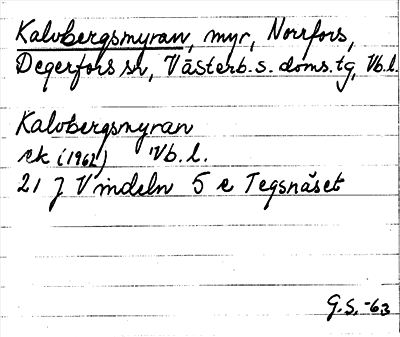 Kalvbergsmyran, myr, Norrfors,
Degerfors sn, Västerb. s. doms. tg, Vb. l.
Kalvbergsmyran
ek (1962) Vb. l.
21 J Vindeln 5 e Tegsnäset
G.S. -63